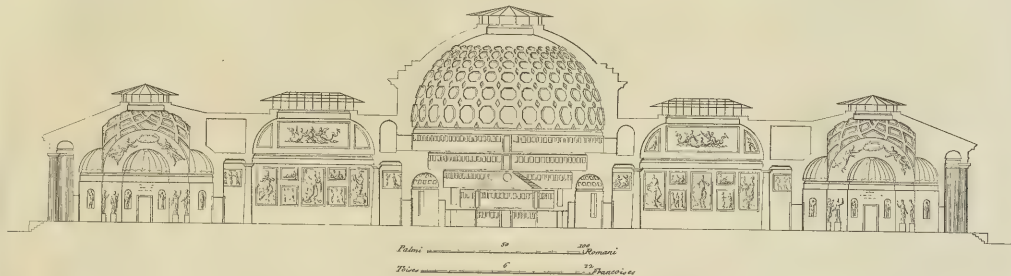 Palmi 50 100 Romani
Toises 6 12 Francoises